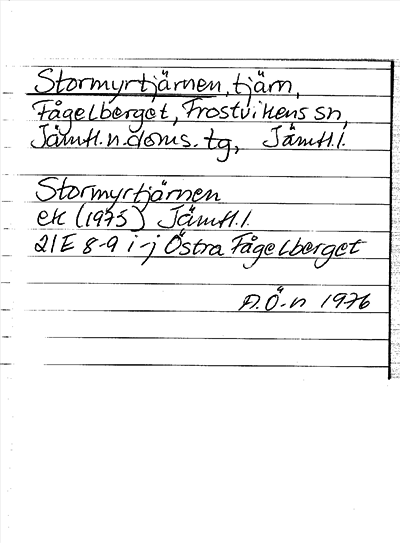 Stormyrtjärnen, tjärn,
Fågelberget, Frostvikens sn,
Jämtl.n.doms.tg, Jämtl.l.
Stormyrtjärnen
ek (1975) Jämtl.l.
21E 8-9 i-j Östra Fågelberget
A.Ö-n 1976